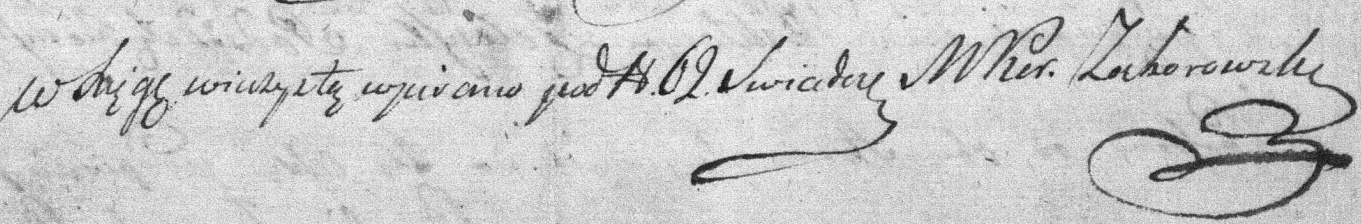 w Xięgę wieczystą wpisano pod N. 62. Swiadczę M Ker. Zakorowski